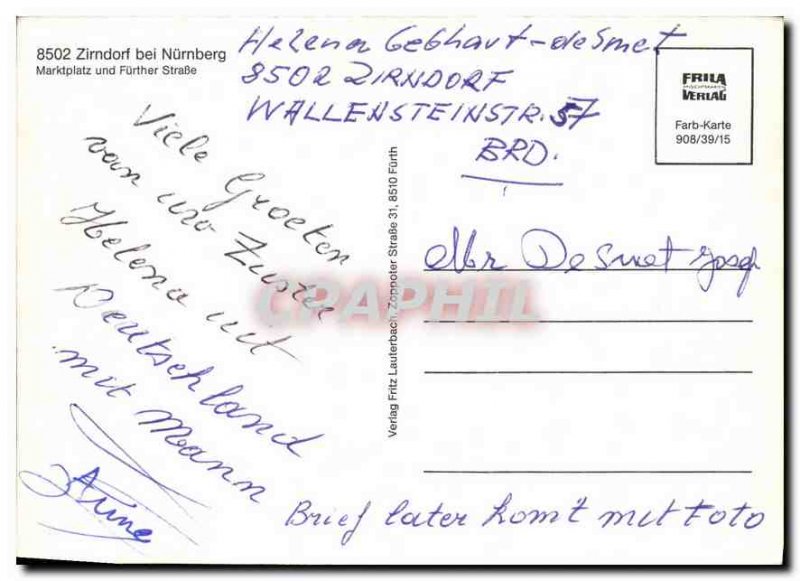 8502 Zirndorf bei Nürnberg
Marktplatz und Fürther Straße
Helena Gebhart-deSmet
8502 ZIRNDORF
WALLENSTEINSTR. 57
BRD.
FRILA
VERLAG
Farb-Karte
908/39/15
Viele Groeten
van uw Zuster
Helena uit
Deutschland
mit Mann
Verlag Fritz Lauterbach, Zoppoter Straße 31, 8510 Fürth
Mr DeSmet Josef
CPAPHIL
Brief later komt met Foto